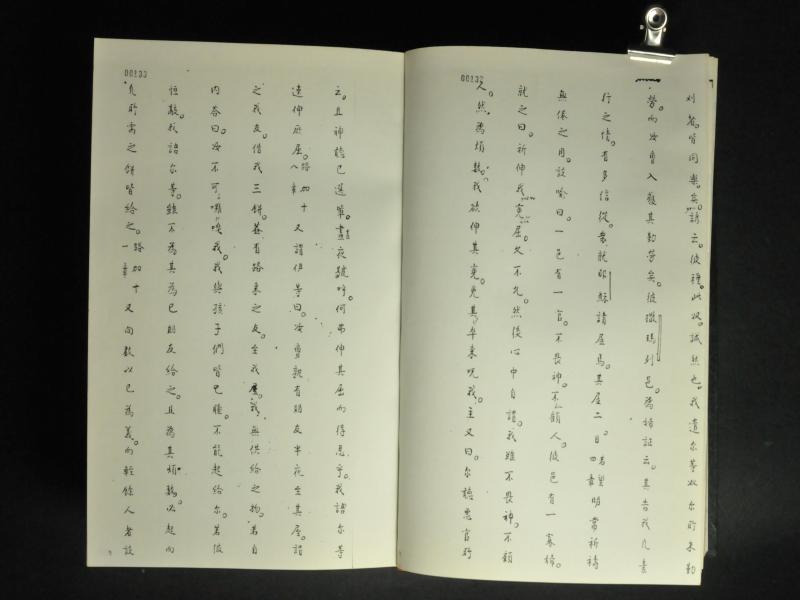 00132
刈者。皆同樂矣。諺云。彼種。此收。誠然也。我遣尔等收尔所未勤
勞。而汝曹入穫其勤勞矣。彼撒瑪列邑。為婦証云。其告我凡素
行之情。有多信從。衆就耶穌請居焉。其居二日。若望四章明當祈禱
無倦之用。設喻曰。一邑有一官。不畏神。不顧人。彼邑有一寡婦。
就之曰。祈伸我寃屈。久不允。然後心中自謂。我雖不畏神。不顧
人。然為煩數。我欲伸其寃。免其卒來呪我。主又曰。尔聽惡官所
00133
云。且神聽已選輩。晝夜號吁。何弗伸其屈而待忍乎。我語尔等
速伸厥屈。路加十八章又謂伊等曰。汝曹孰有朋友半夜至其屋。謂
之我友。借我三餅。葢有路來之友。至我屋。我無供給之物。若自
内答曰。汝不可唉我。我與孩子們皆已睡。不能起給尔。若彼
恒敲。我語尔等。雖不為其為己朋友給之。且為其煩數。必起而
凡所需之餅皆給之。路加十一章又向数以己為義。而輕餘人者設